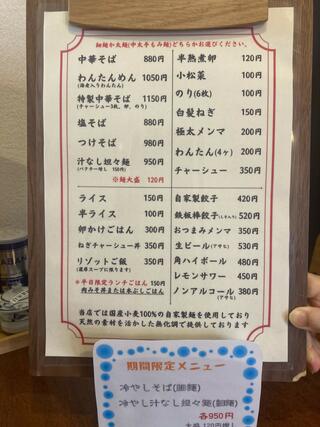 細麺か太麺(中太手もみ麺)どちらかお選びください。
中華そば 880円
わんたんめん 1050円
(海老入りわんたん)
特製中華そば 1150円
(チャーシュー3枚、卵、のり)
塩そば 880円
つけそば 980円
汁なし坦々麺 950円
(パクチー増し 150円)
※麺大盛 120円
半熟煮卵 120円
小松菜 100円
のり(6枚) 100円
白髪ねぎ 150円
極太メンマ 200円
わんたん(4ヶ) 200円
チャーシュー 350円
ライス 150円
半ライス 100円
卵かけごはん 300円
ねぎチャーシュー丼 350円
リゾットご飯 350円
(濃厚スープに限ります)
※平日限定ランチごはん 150円
肉みそ丼またはネぶしごはん
自家製餃子 420円
鉄板棒餃子(しそ入り) 520円
おつまみメンマ 350円
生ビール(アサヒ) 530円
角ハイボール 480円
レモンサワー 450円
ノンアルコール 380円
(アサヒ)
当店では国産小麦100%の自家製麺を使用しており
天然の素材を活かした無化調で提供しております
期間限定メニュー
冷やしそば(細麺)
冷やし汁なし坦々麺(細麺)
各950円
大盛 120円増し